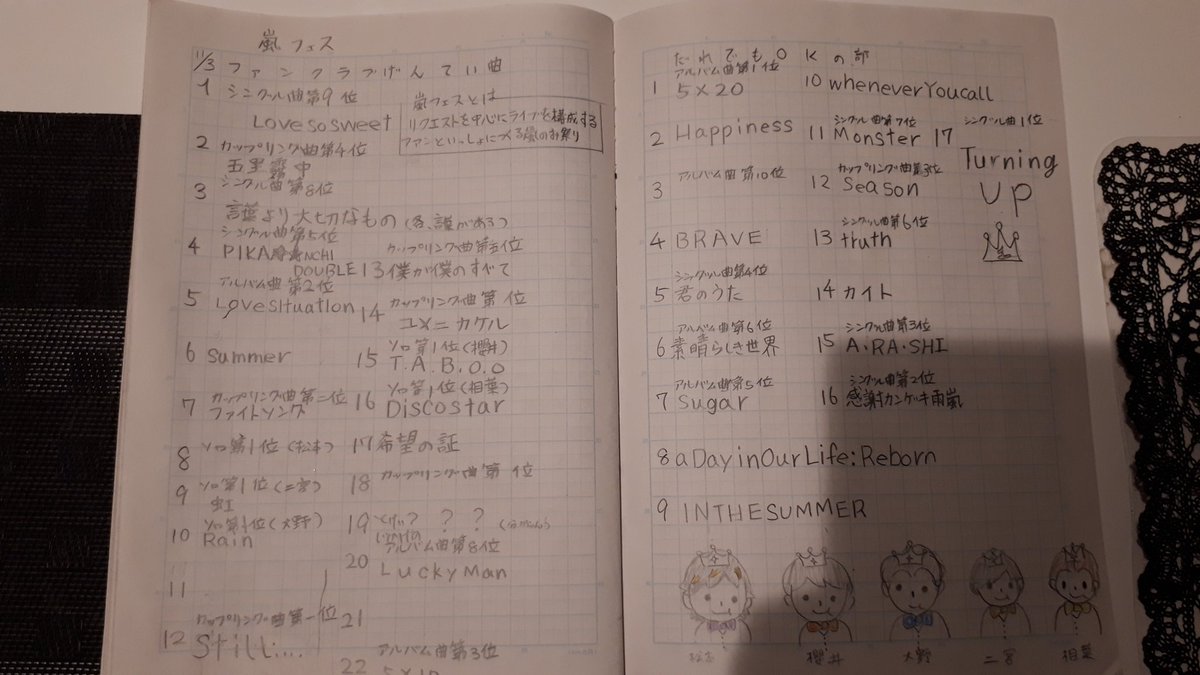 嵐フェス
11/3 ファンクラブげんてい曲
1 シングル曲第9位
Lovesosweet
嵐フェスとは
リクエストを中心にライブを構成する
ファンといっしょにつくる嵐のお祭り
2 カップリング曲第4位
五里霧中
3 シングル曲第8位
言葉より大切なもの
4 シングル曲第5位
PIKA NCHI
DOUBLE
5 アルバム曲第2位
Lovesituation
6 Summer
7 カップリング曲第二位
ファイトソング
8 ソロ第1位(松本)
9 ソロ第1位(二宮)
虹
10 ソロ第1位(大野)
Rain
11
12 カップリング曲第一位
Still....
カップリング曲第五位
13 僕が僕のすべて
14 カップリング曲第 位
ユメニカケル
15 ソロ第1位(櫻井)
T.A.B.O.O
16 ソロ第1位(相葉)
Discostar
17 希望の証
18 カップリング曲第 位
19 ? ?
20 アルバム曲第8位
LuckyMan
21
22 アルバム曲第3位
5×10
だれでもOKの部
1 アルバム曲第1位
5×20
2 Happiness
3 アルバム曲第10位
4 BRAVE
5 シングル曲第4位
君のうた
6 アルバム曲第6位
素晴らしき世界
7 アルバム曲第5位
Sugar
8 aDayinOurLife:Reborn
9 INTHESUMMER
10 wheneverYoucall
11 シングル曲第7位
Monster
12 カップリング曲第3位
Season
13 シングル曲第6位
truth
14 カイト
15 シングル曲第3位
A・RA・SHI
16 シングル曲第2位
感謝カンゲキ雨嵐
17 シングル曲1位
Turning
Up
松本 櫻井 大野 二宮 相葉